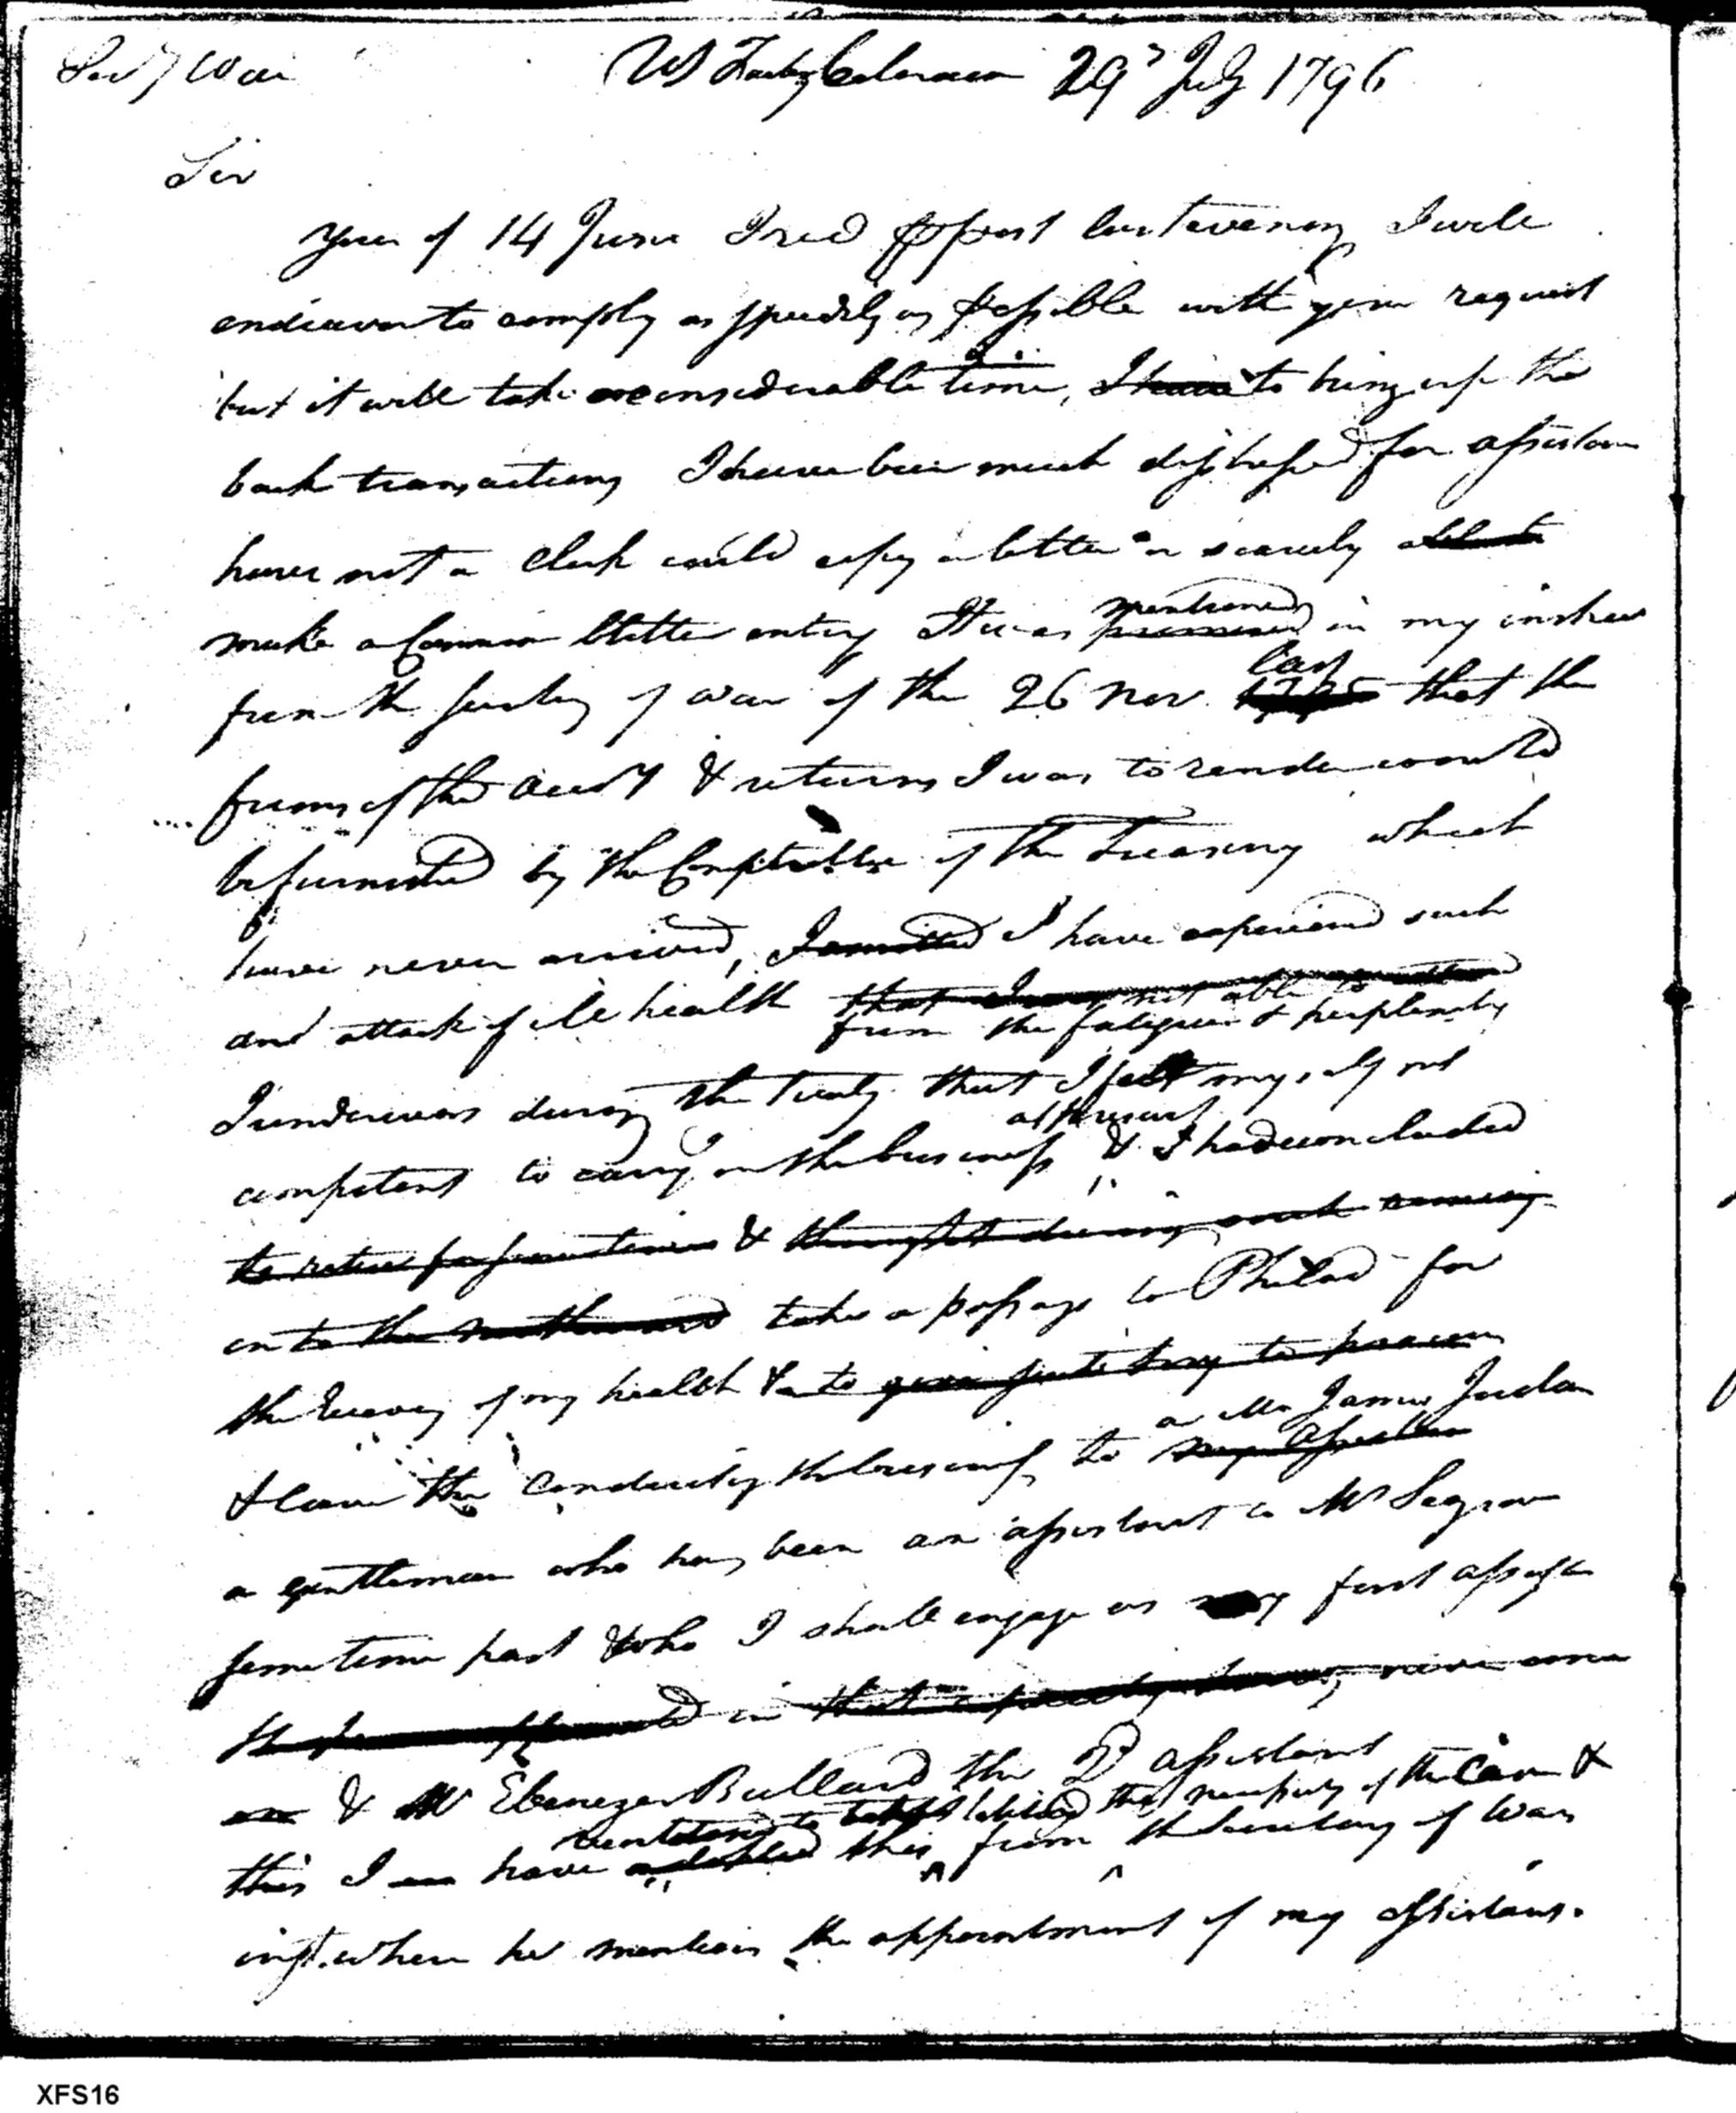 Secy War
US Factory Coleraine 29th July 1796
Sir
Your of 14 June I recd pr post last evening I will
endeavor to comply as speedily as possible with your request
but it will take considerable time, I have to bring up the
back transactions I have been much distressed for assistance
have not a Clerk could copy a letter or scarcely able to
make a Common entry It was mentioned in my instructions
last
from the Secretary of War of the 26 Nov. 1795 that the
forms of the Accots & returns I was to render would
be furnished by the Comptroller of the Treasury which
have never arrived, I have experienced such
and attack of ill health that I was not able to
from the fatigues & perplexity
I underwent during the Treaty that I felt myself not
at present
competent to carry on the business & I had concluded
to retire for sometime & thought during
on to the northward take a passage to Philad for
the recovery of my health & to
a Mr James Jordan
& leave the conducting the business to my assistan
a gentleman who has been an assistant to Mr Seagrove
some time past & who I shall engage as my first assist
in that capacity never
& Mr Ebenezer Bullard the 2d assistant
the necessity of the Case &
this I have this from the Secretary of War
inst. where he mentions the appointment of my assistants.
XFS16